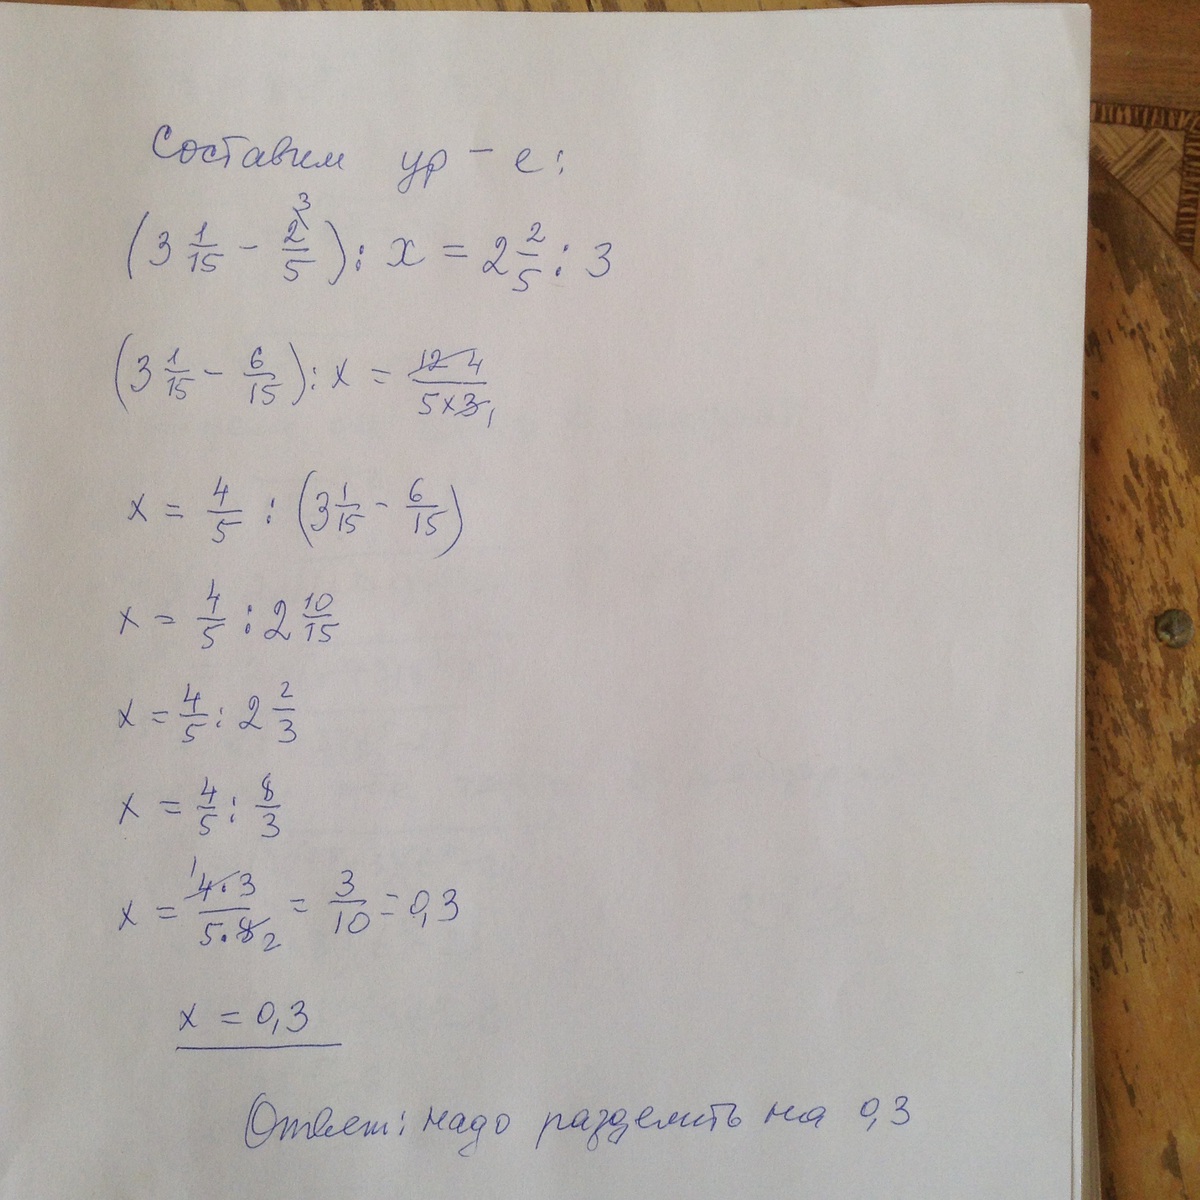 Составим ур-е:
(3 1/15 - 2/5 3) : x = 2 2/5 : 3
(3 1/15 - 6/15) : x = 12 4 / 5×3 1
x = 4/5 : (3 1/15 - 6/15)
x = 4/5 : 2 10/15
x = 4/5 : 2 2/3
x = 4/5 : 8/3
x = 1 4·3 / 5·8 2 = 3/10 = 0,3
x = 0,3
Ответ: надо разделить на 0,3